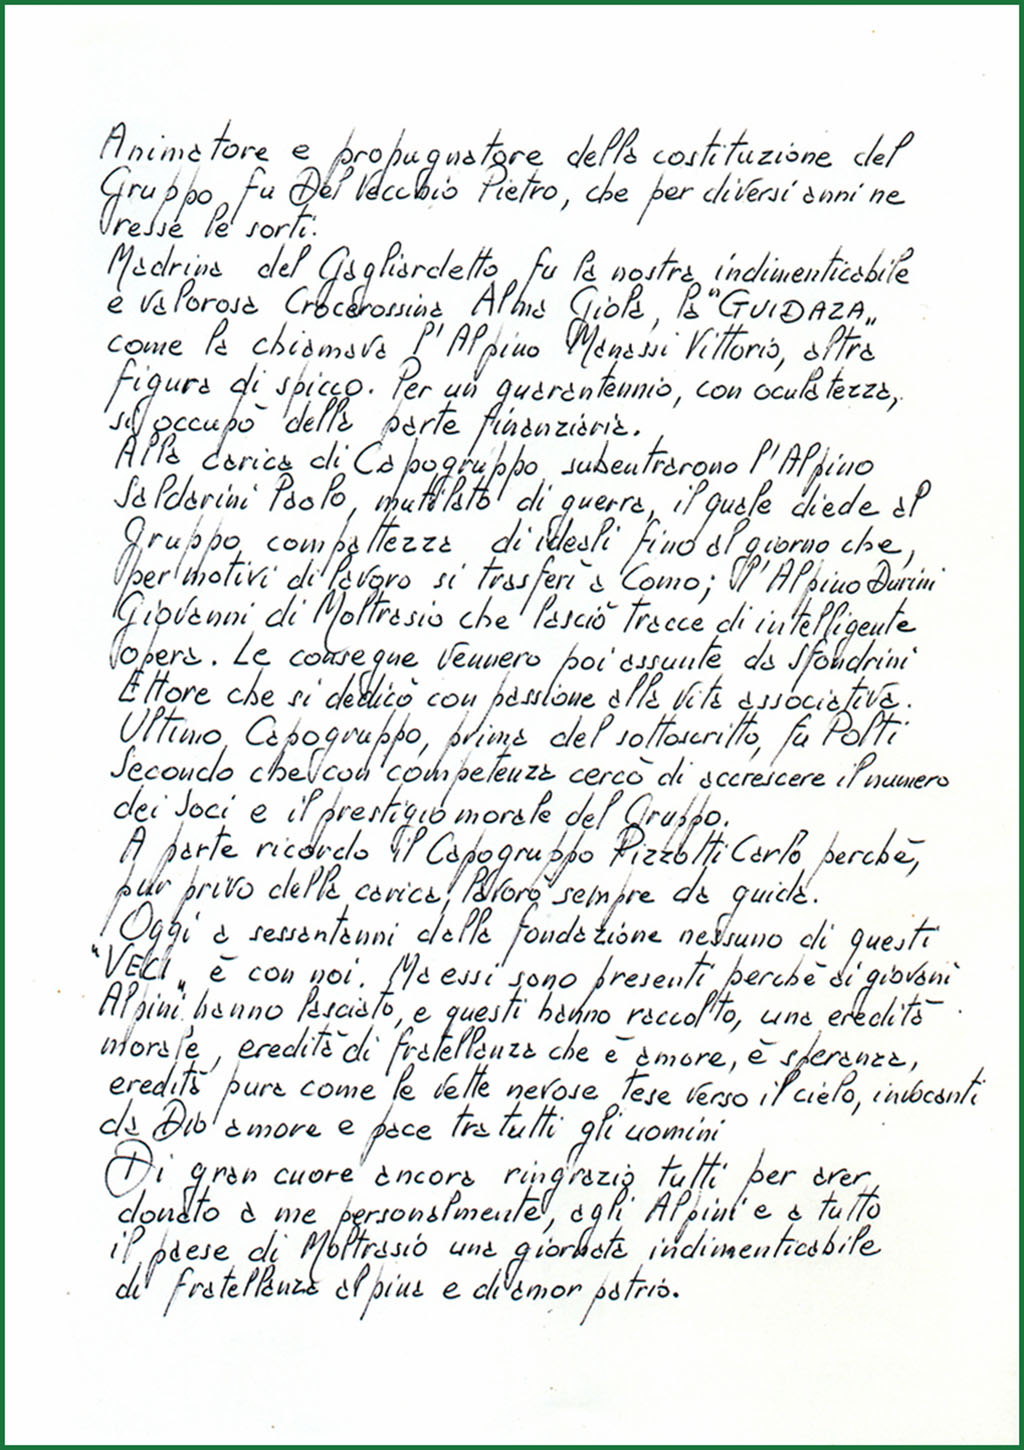 Animatore e propugnatore della costituzione del
Gruppo fu Del Vecchio Pietro, che per diversi anni ne
resse le sorti.
Madrina del Gagliardetto fu la nostra indimenticabile
e valorosa Crocerossina Alma Giola, la "GUIDAZA„
come la chiamava l'Alpino Manassi Vittorio, altra
figura di spicco. Per un quarantennio, con oculatezza,
si occupò della parte finanziaria.
Alla carica di Capogruppo subentrarono l'Alpino
Saldarini Paolo, mutilato di guerra, il quale diede al
Gruppo compattezza di ideali fino al giorno che,
per motivi di lavoro si trasferì a Como; l'Alpino Durini
Giovanni di Moltrasio che lasciò tracce di intelligente
opera. Le consegne vennero poi assunte da Sfondrini
Ettore che si dedicò con passione alla vita associativa.
Ultimo Capogruppo, prima del sottoscritto, fu Polti
Secondo che con competenza cercò di accrescere il numero
dei Soci e il prestigio morale del Gruppo.
A parte ricordo il Capogruppo Pizzotti Carlo perchè,
pur privo della carica, lavorò sempre da guida.
Oggi a sessantanni dalla fondazione nessuno di questi
"VECI„ è con noi. Ma essi sono presenti perchè ai giovani
Alpini hanno lasciato, e questi hanno raccolto, una eredità
morale, eredità di fratellanza che è amore, è speranza,
eredità pura come le vette nevose tese verso il cielo, invocanti
da Dio amore e pace tra tutti gli uomini
Di gran cuore ancora ringrazio tutti per aver
donato a me personalmente, agli Alpini e a tutto
il paese di Moltrasio una giornata indimenticabile
di fratellanza alpina e di amor patrio.